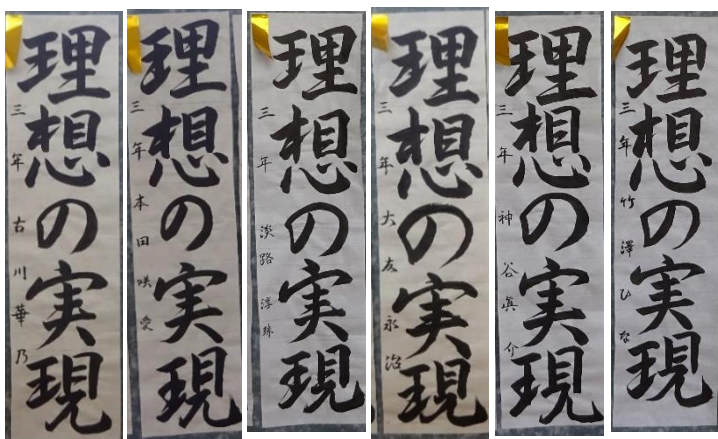 理想の実現
三年 古川華乃
理想の実現
三年 本田咲愛
理想の実現
三年 淡路淳珠
理想の実現
三年 大友永治
理想の実現
三年 神谷眞介
理想の実現
三年 竹澤ひな